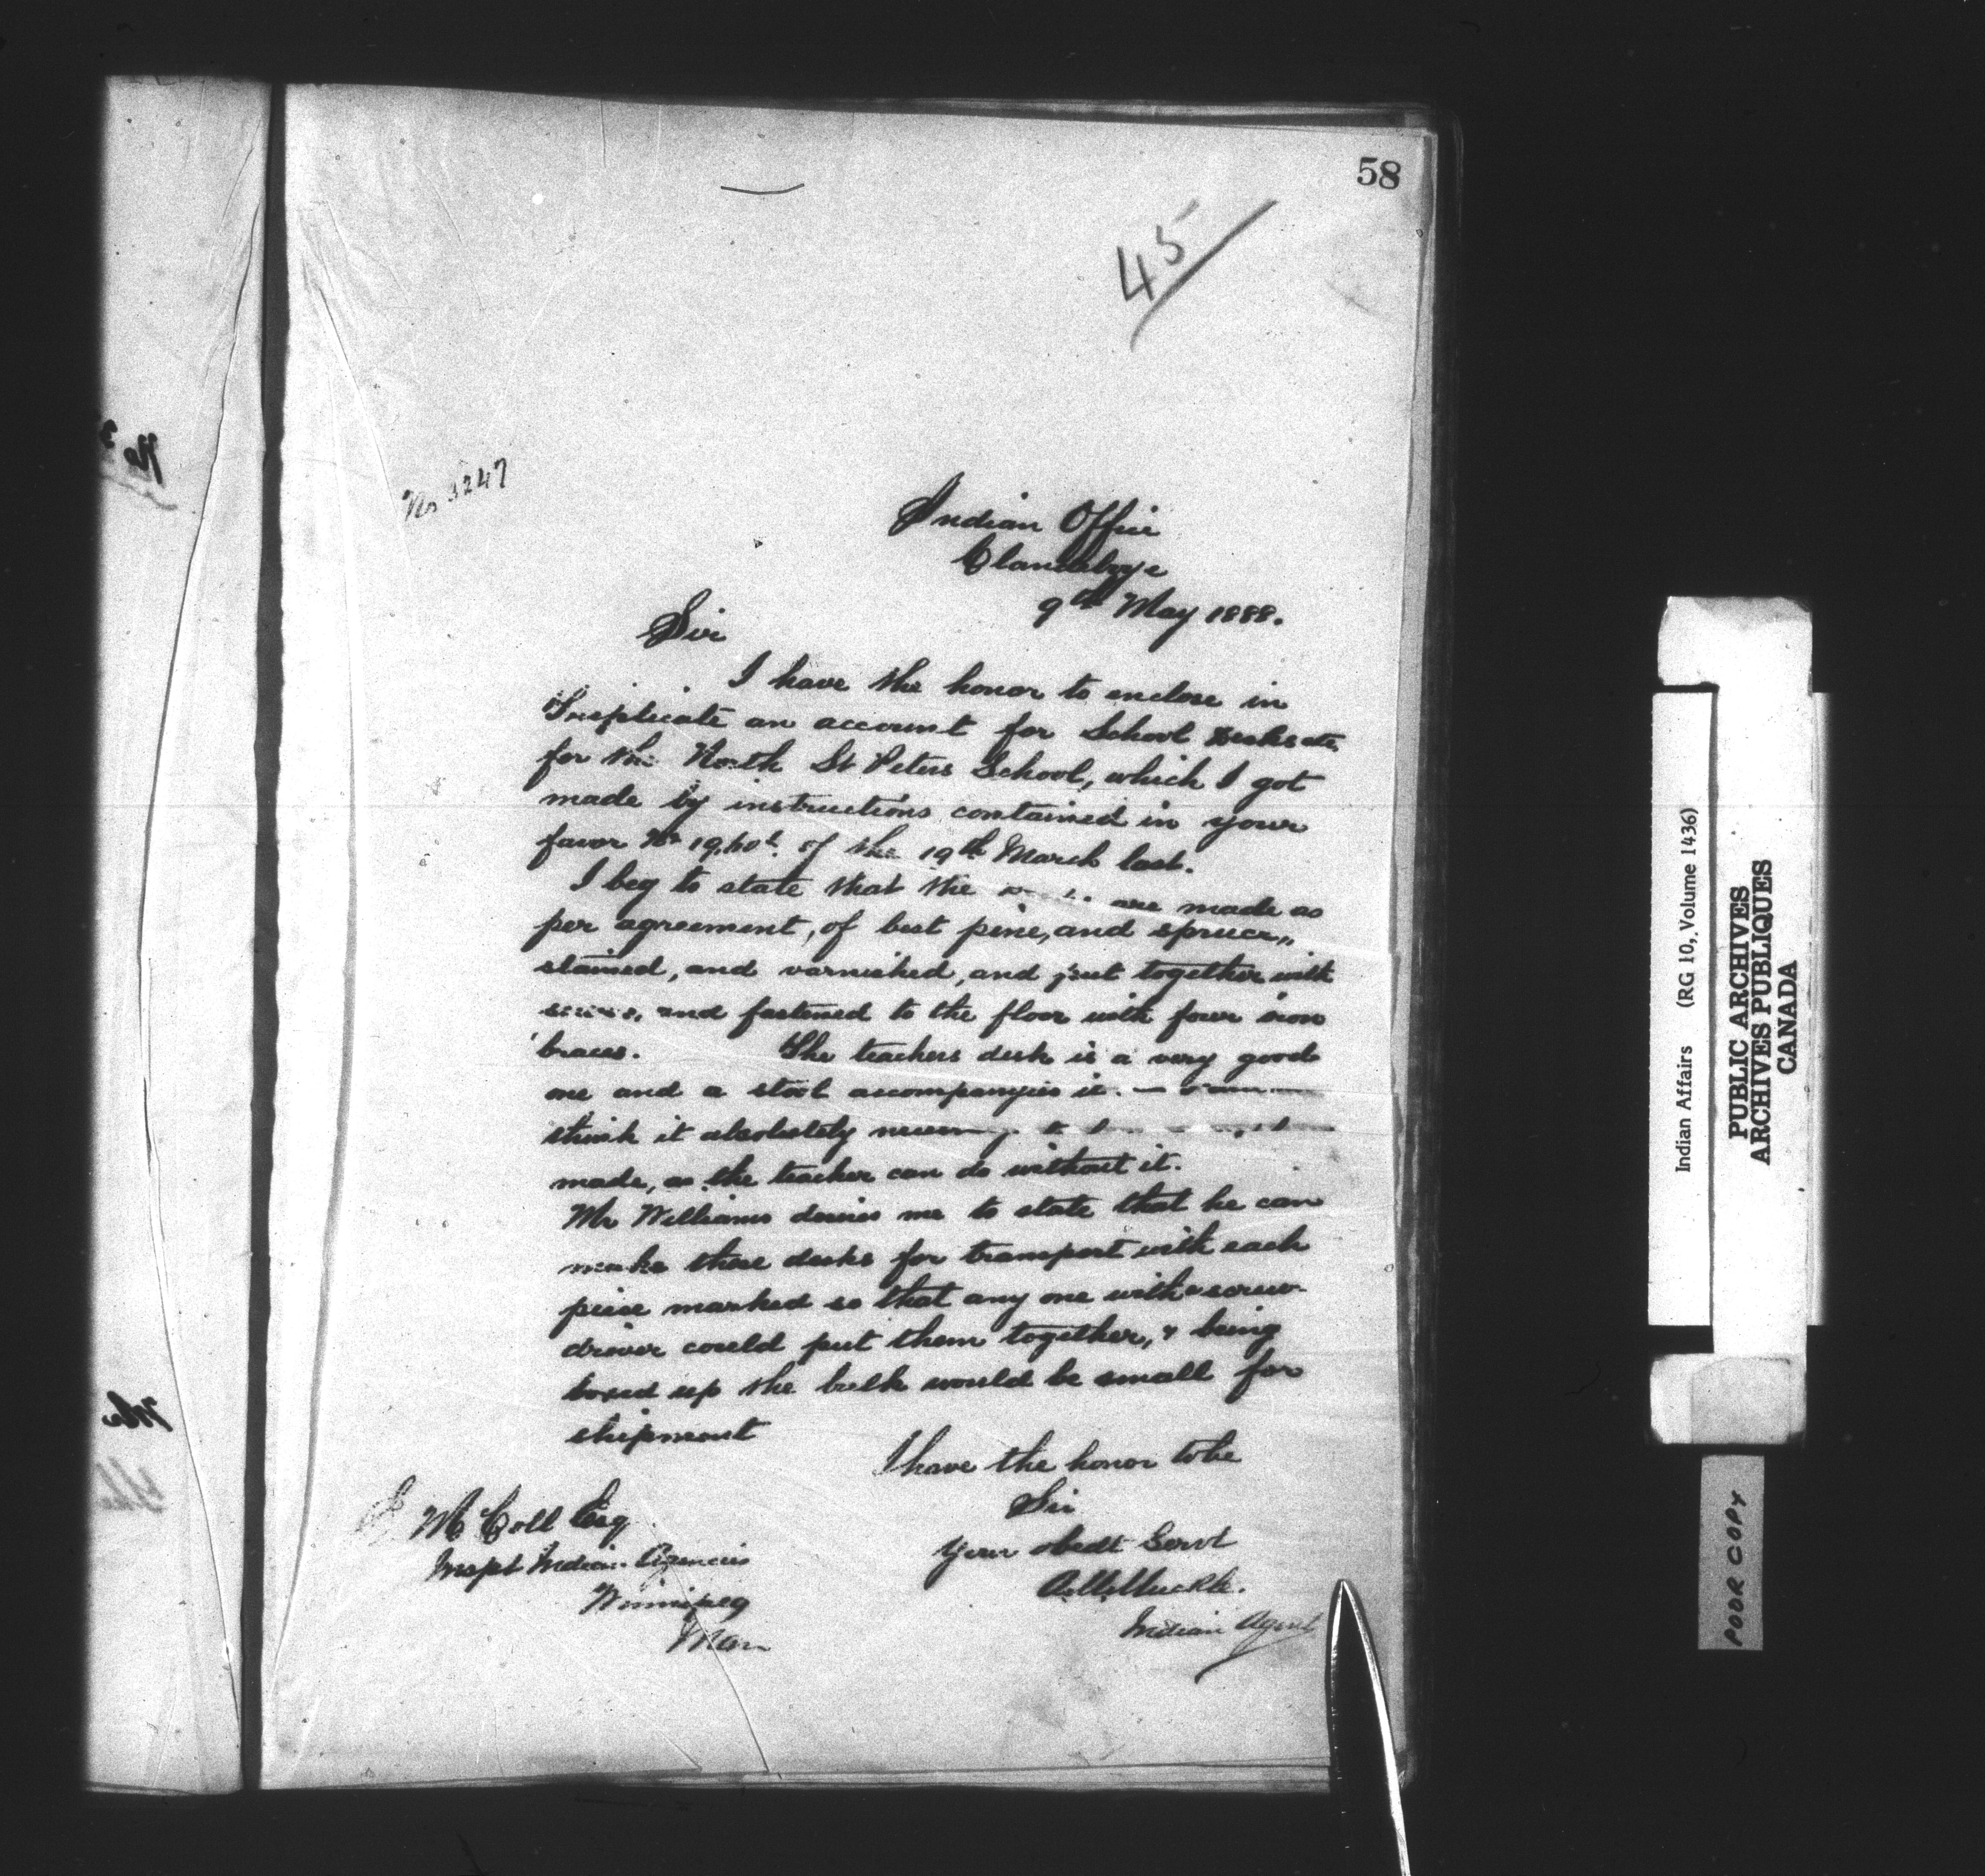 58
45
No 3247
Indian Office
Clandeboye
9th May 1888.
Sir
I have the honor to enclose in
Triplicate an account for School Desks etc
for the North St Peters School, which I got
made by instructions contained in your
favor No of the 19th March last.
I beg to state that the are made as
per agreement, of best pine, and spruce,,
stained, and varnished, and put together with
screws, and fastened to the floor with four iron
braces. The teachers desk is a very good
one and a stool accompanies it.
think it absolutely necessary to
made, as the teacher can do without it.
Mr Williams desires me to state that he can
make these desks for transport with each
piece marked so that any one with a screw
driver could put them together, & being
boxed up the bulk would be small for
shipment
I have the honor to be
Sir
Your obedt Servt
Muckle.
Indian Agent
E McColl Esq
Inspt Indian Agencies
Winnipeg
Man
Indian Affairs (RG 10, Volume 1436)
PUBLIC ARCHIVES
ARCHIVES PUBLIQUES
CANADA
POOR COPY